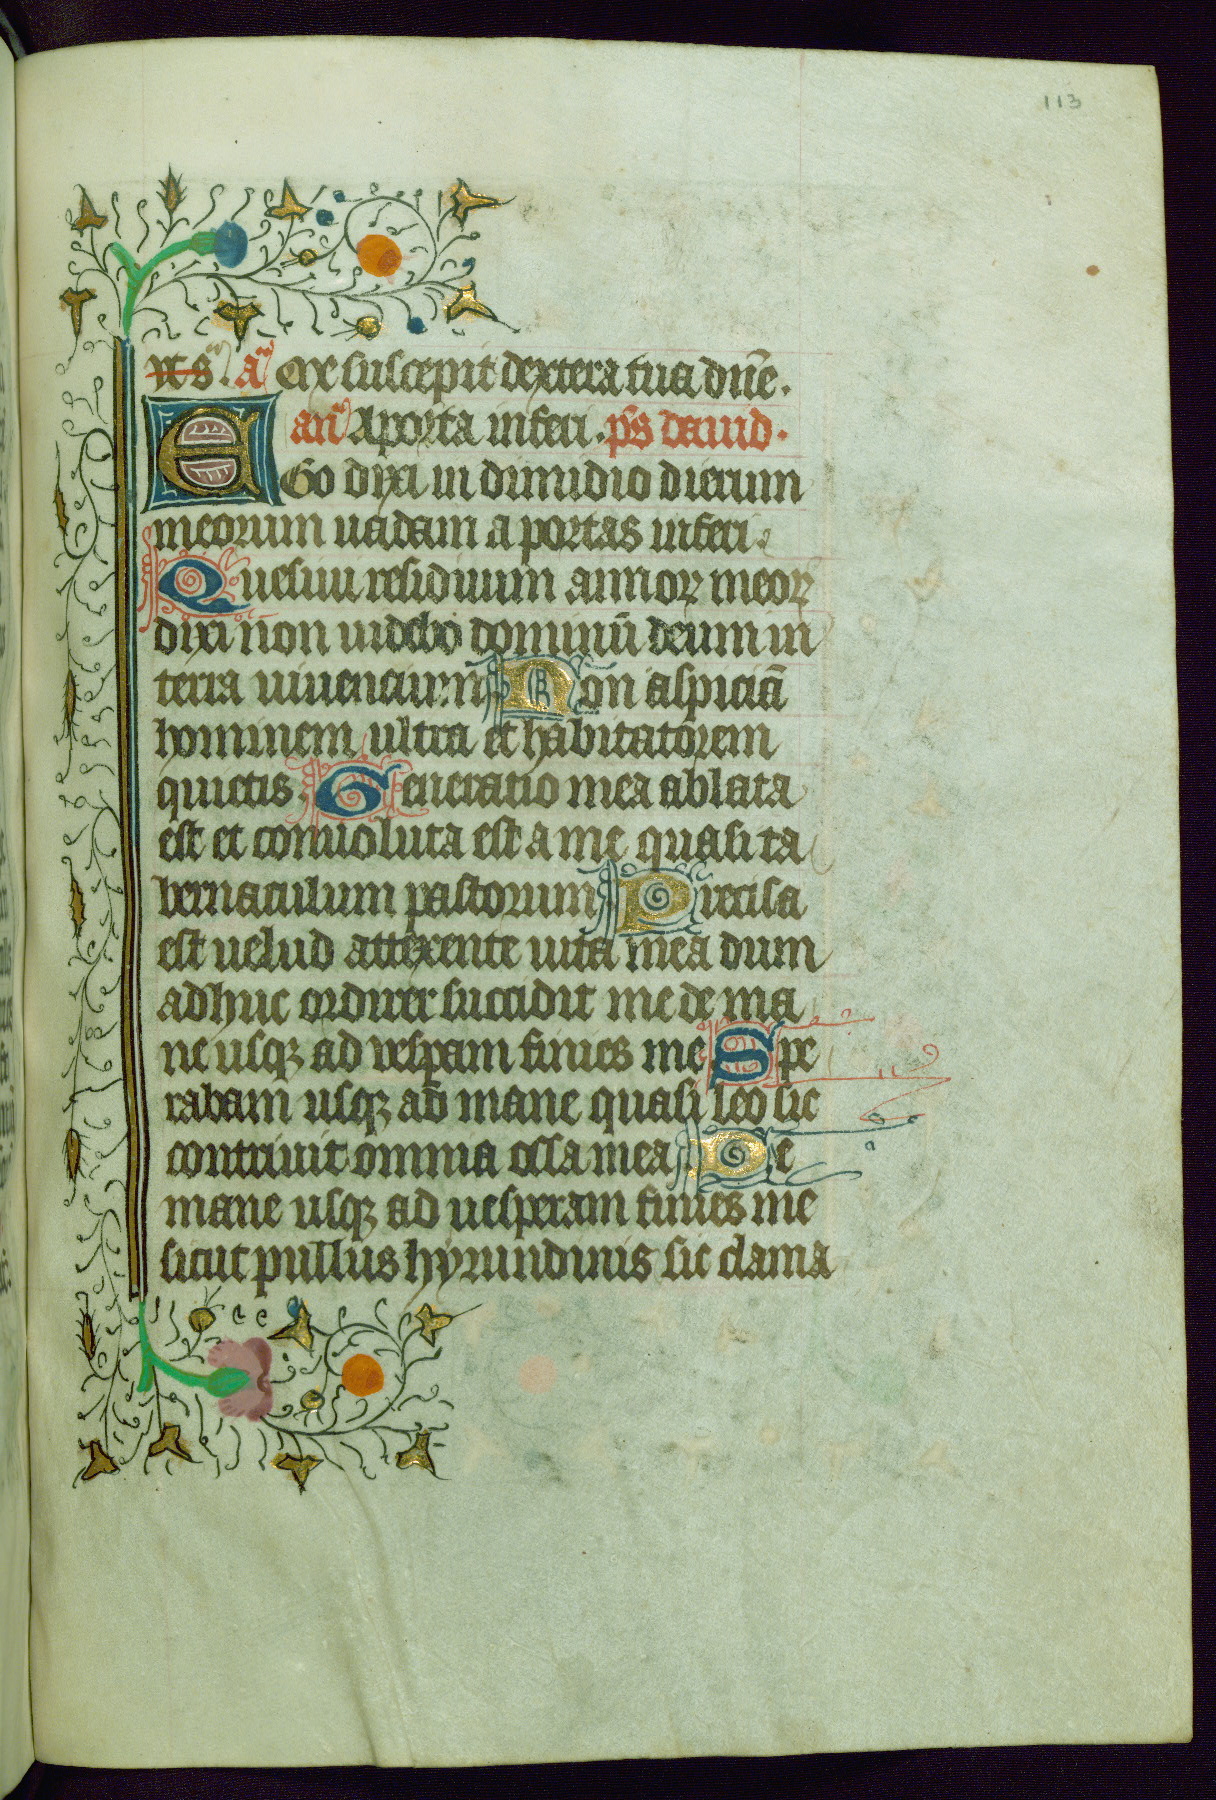 113
a͞ Me suscepit dextera tua dn̄e.
an̄ A porta inferi. ps̄ dauid.
EGo dixi in dimidio dierum
meorum uadam a portas inferi.
Quesiui residuum annoꝝ meoꝝ
dixi non uidebo dominū deum in
terra uiuencium Non aspiciā
hominem ultra et habitatorem
quietis. Generatio mea ablata
est et conuoluta est a me quasi ta
bernaculum pastorum Precisa
est uelud attexente uita mea dum
adhuc ordirer succidit me de ma
ne usqꝫ ad vespam finies me Spe
rabam usqꝫ ad mane quasi leo sic
contriuit omnia ossa mea De
mane usqꝫ ad uesperam finies me
sicut pullus hyrundinis sic clama